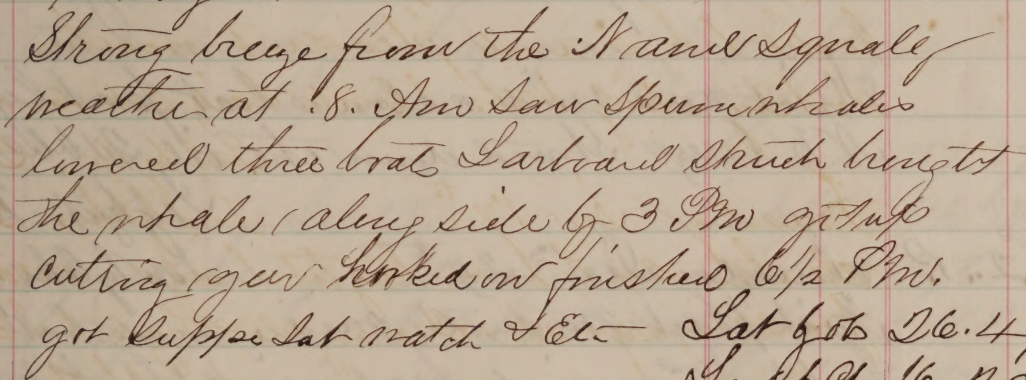 Strong breeze from the N and squaly
weather at .8. Am Saw Sperm whales
lowered three boats Larboard struck brought
the whale along side by 3 PM got up
cutting gear hooked on finished 6 1/2 PM.
got supper Set watch & Etc Lat by ob 26.4